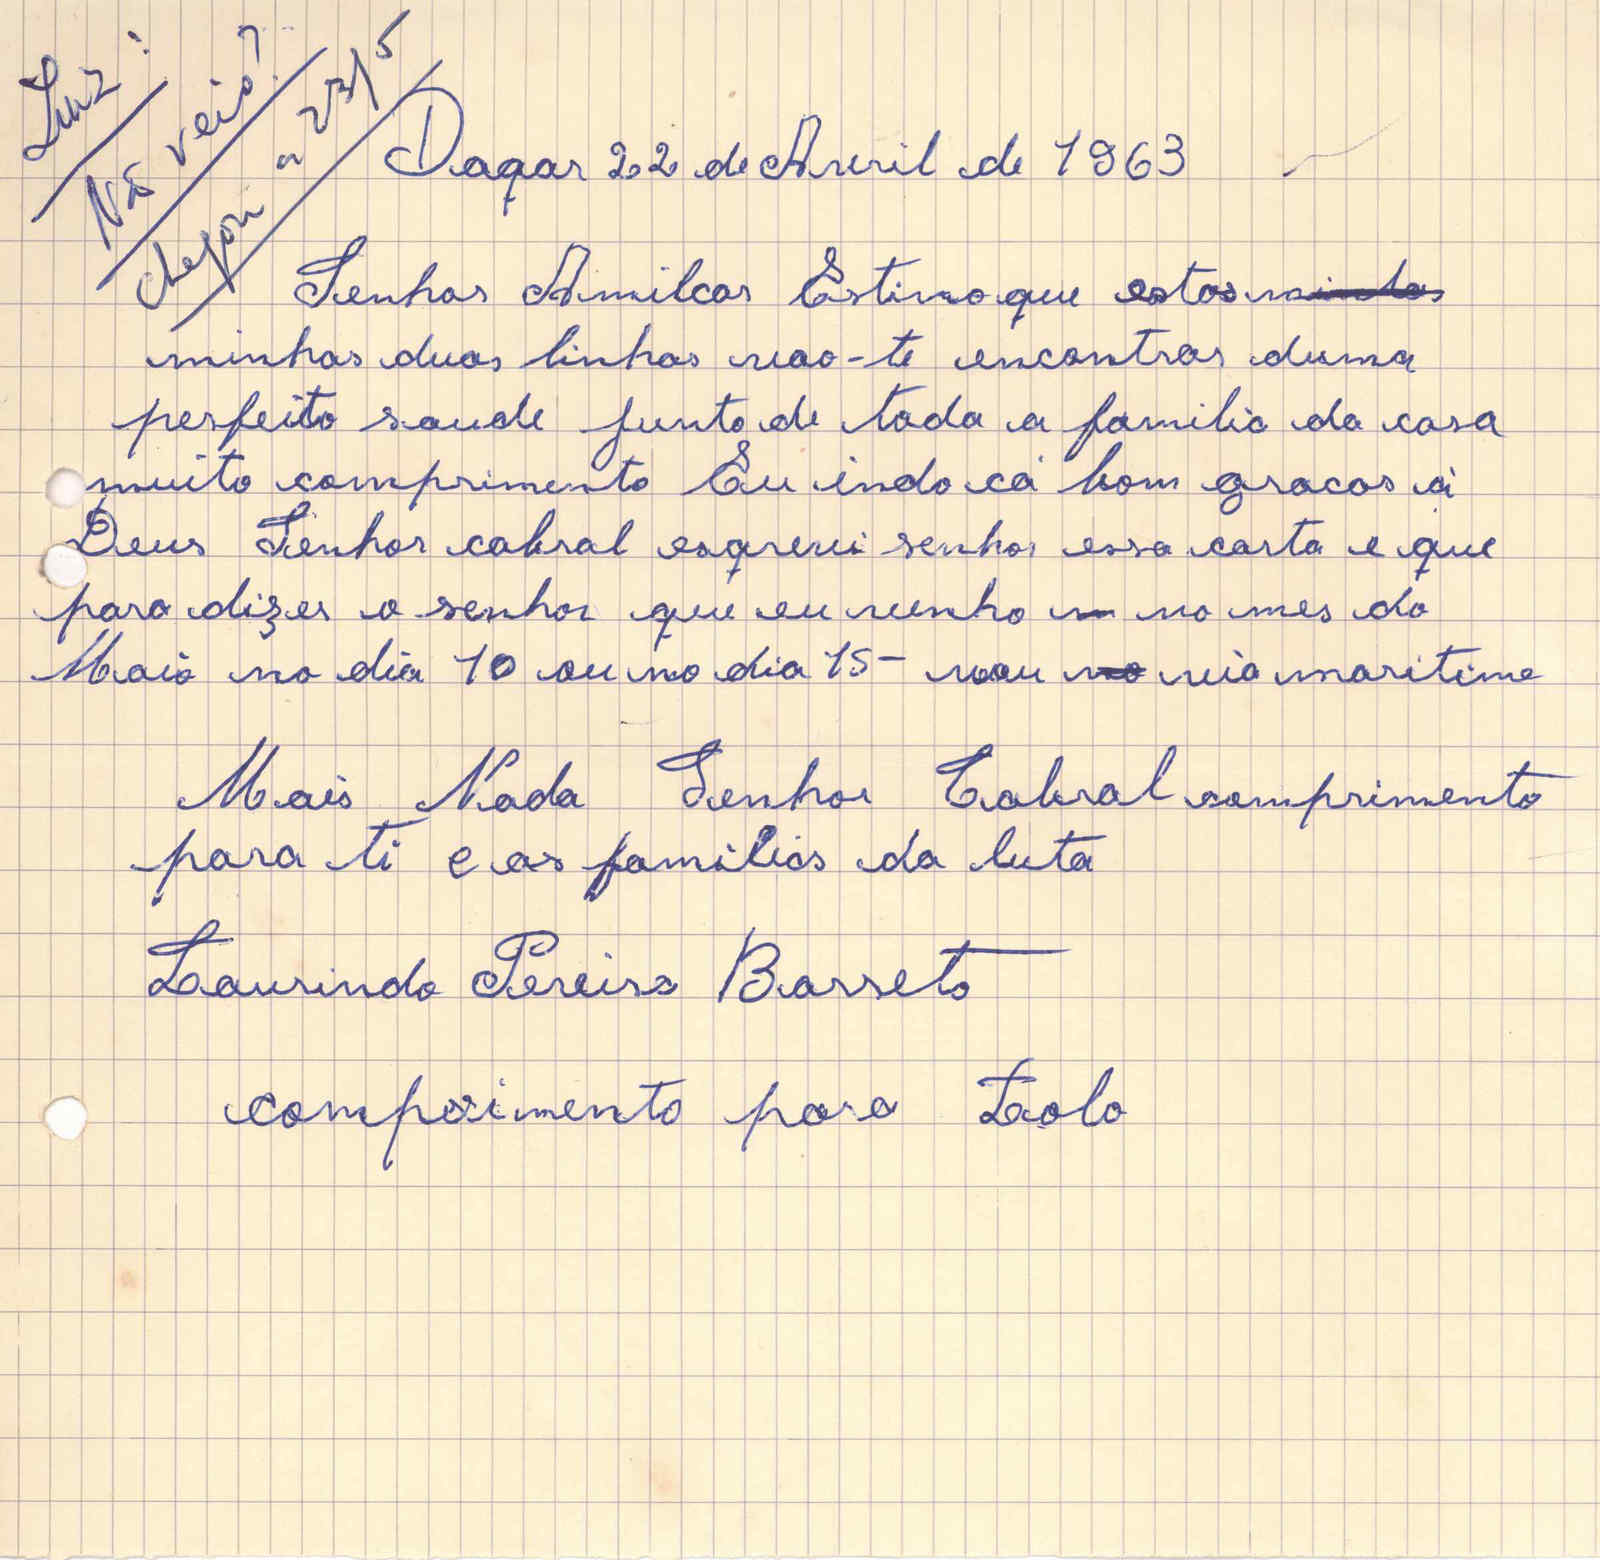 Luiz:
Não veio?
chegou a 23/5
Daqar 22 de Avril de 1963
Senhor Amilcar Estimo que estas
minhas duas linhas vao-te encontrar duma
perfeito saude junto de toda a familia da casa
muito comprimento Eu indo cá bom gracas à
Deus Senhor cabral esqrevi senhor essa carta e que
para dizer o senhor que eu venho no mes do
Maio no dia 10 ou no dia 15- vou via maritime
Mais Nada Senhor Cabral comprimento
para ti e as familias da luta
Laurindo Pereira Barreto
comprimento para Lalo